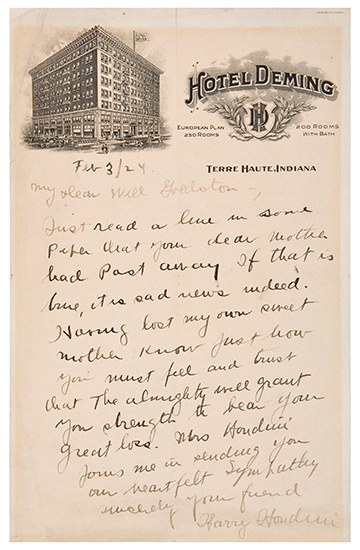 HOTEL DEMING
EUROPEAN PLAN
250 ROOMS
200 ROOMS
WITH BATH
TERRE HAUTE, INDIANA
Feb 3/24
My dear Will Goldston -,
Just read a line in some
Paper that your dear mother
had Past away. If that is
true, it is sad news indeed.
Having lost my own sweet
mother Know Just how
you must feel and trust
that The almighty will grant
you strength to bear your
great loss. Mrs Houdini
Joins me in sending you
our heartfelt Sympathy
sincerely your friend
Harry Houdini